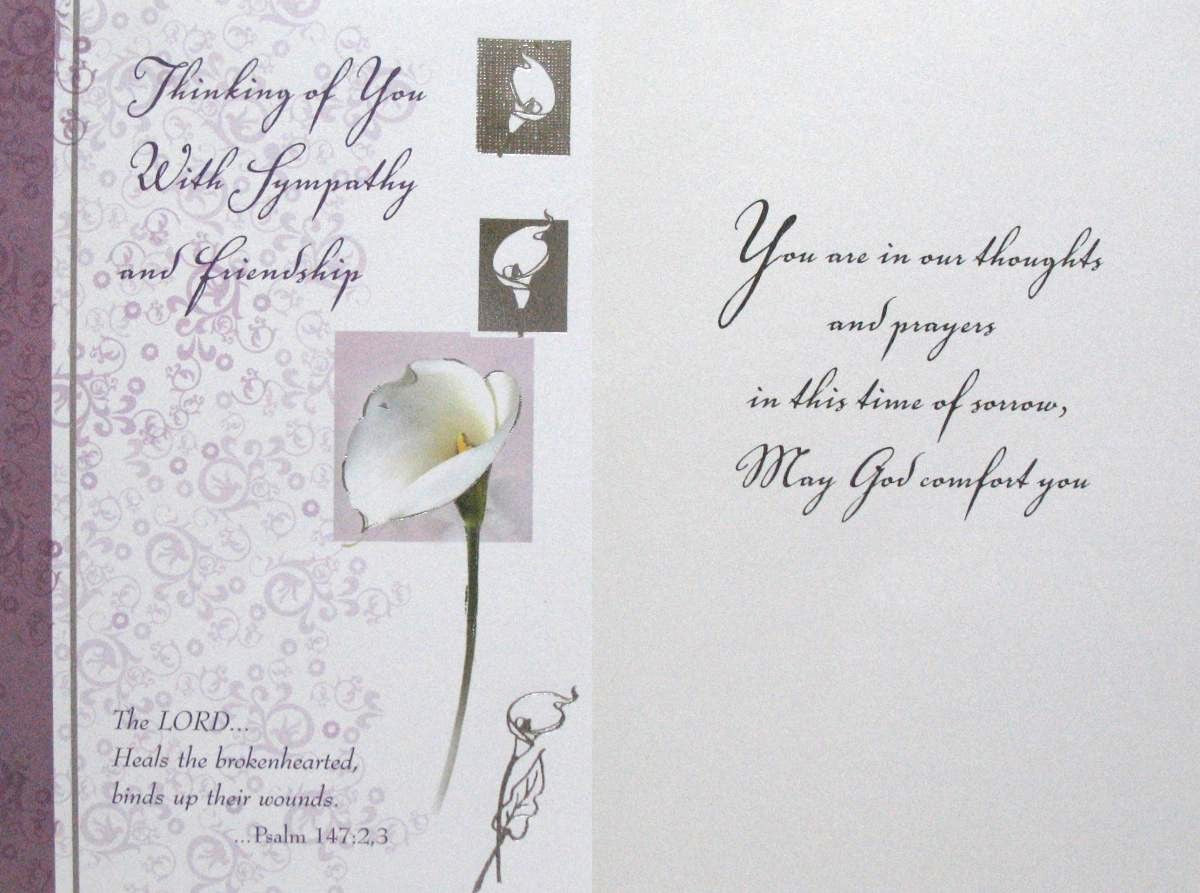 Thinking of You
With Sympathy
and friendship
The LORD...
Heals the brokenhearted,
binds up their wounds.
...Psalm 147:2,3
You are in our thoughts
and prayers
in this time of sorrow,
May God comfort you